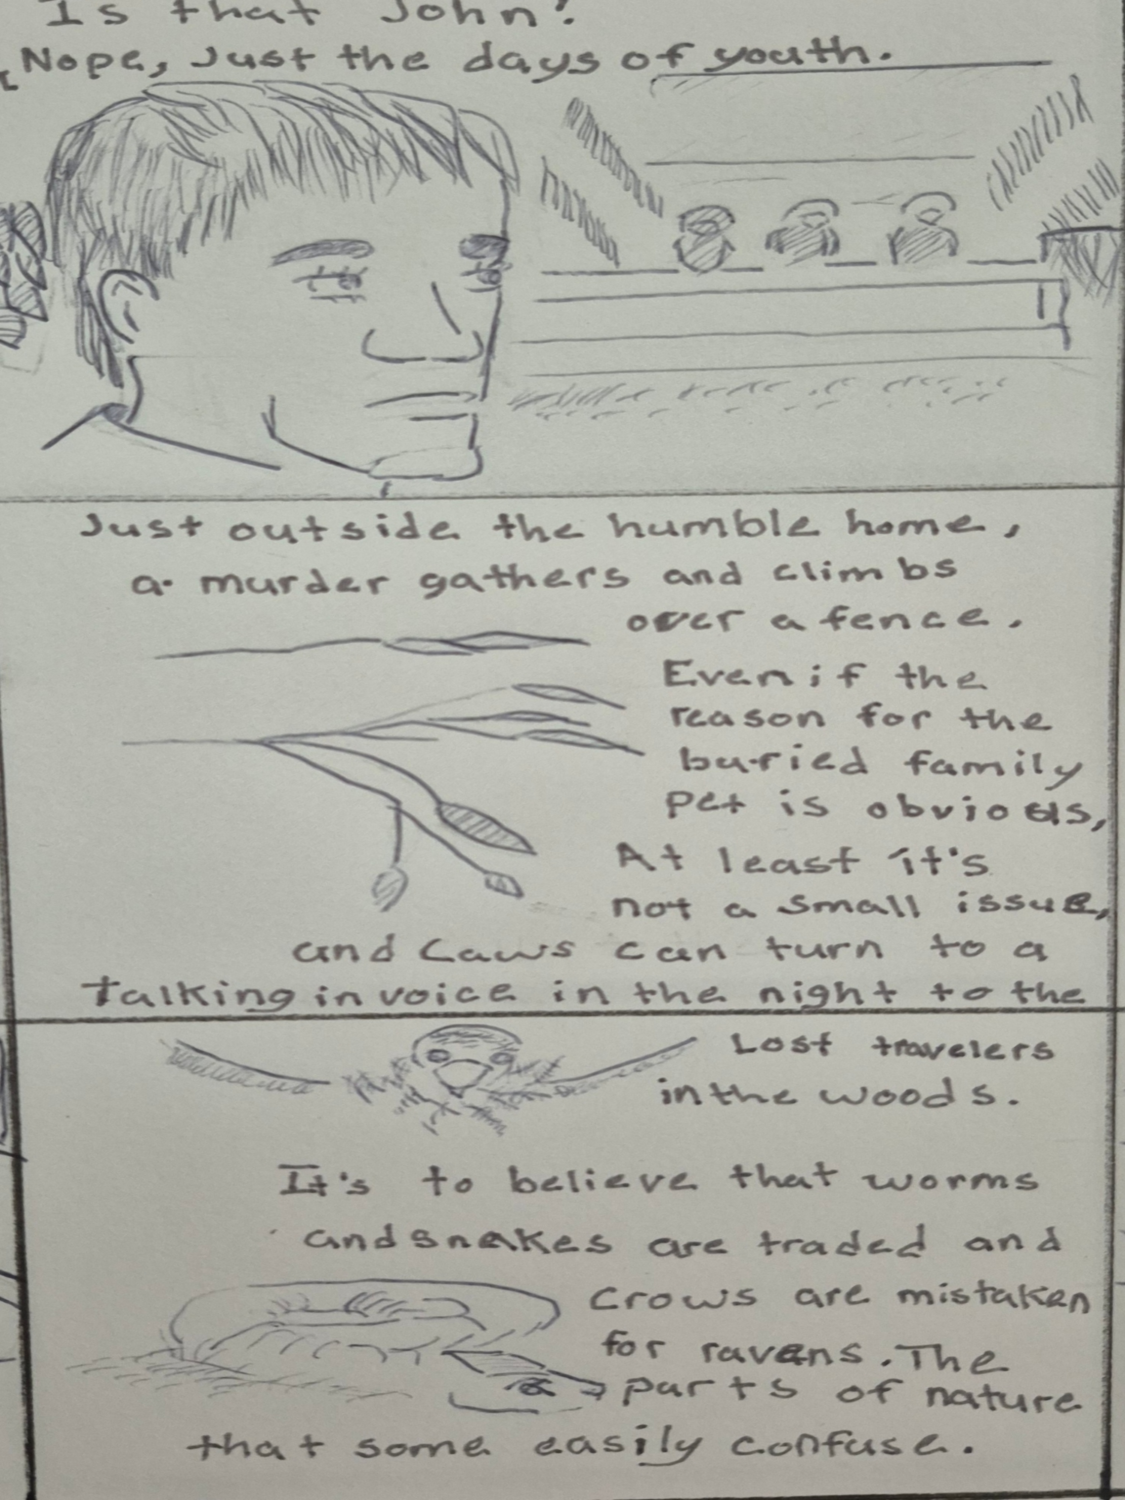 Is that John?
Nope, Just the days of youth.
Just outside the humble home,
a murder gathers and climbs
over a fence.
Even if the
reason for the
buried family
pet is obvious,
At least it's
not a small issue,
and Caws can turn to a
Talking in voice in the night to the
Lost travelers
in the woods.
It's to believe that worms
and snakes are traded and
crows are mistaken
for ravens. The
parts of nature
that some easily confuse.